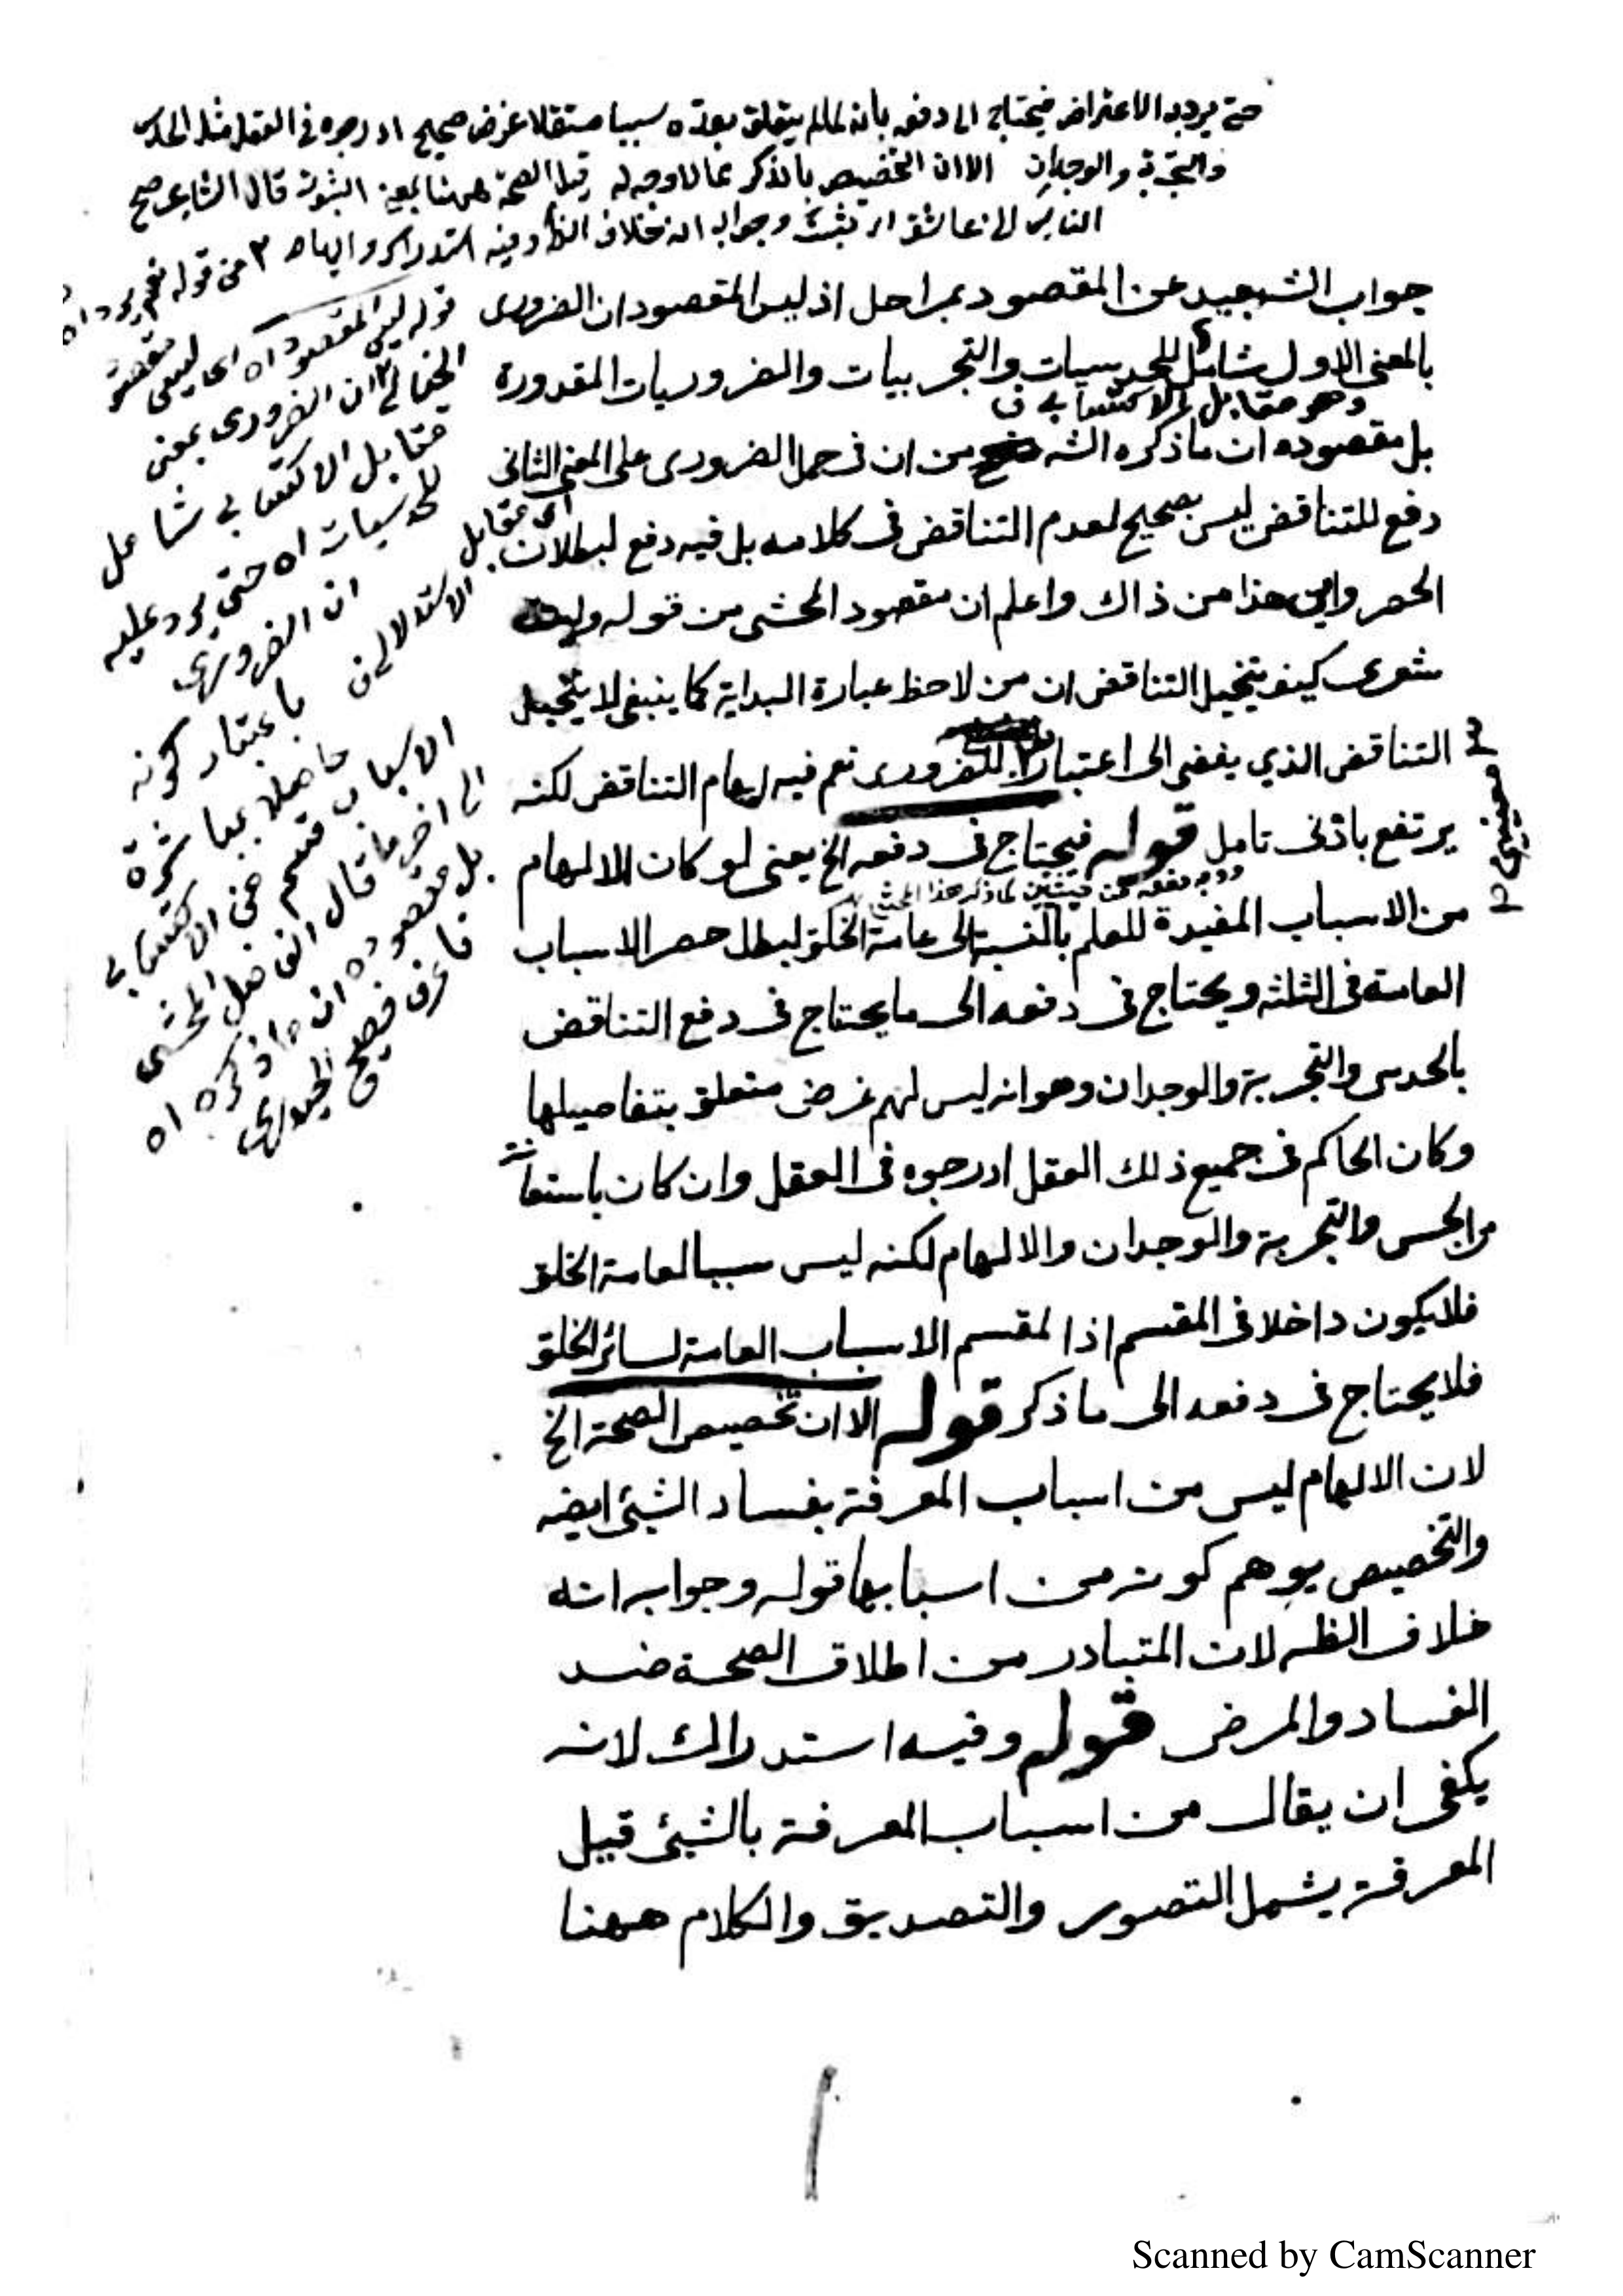 حتى يرد به الاعتراض فيحتاج الى دفعه بانه لما لم يتعلق بعده سببا مستقلا غرض صحيح ادرجوه فى العقل مثل الحدس
والتجربة والوجدان الا ان التخصيص بالذكر مما لا وجه له وقيل الصحة ههنا بمعنى الثبوت قال الشاعر صح
الناس انى عاشق اى ثبت وجوابه انه خلاف الظ وفيه استدراك
جواب الشه بعيد عن المقصود بمراحل اذ ليس المقصود ان الضرورى
بالمعنى الاول شامل للحدسيات والتجربيات والضروريات المقدورة
وهو مقابل الاكتسابى
بل مقصوده ان ما ذكره الشه من ان فى حمل الضرورى على المعنى الثانى
اى مقابل
دفع للتناقض ليس بصحيح لعدم التناقض فى كلامه بل فيه دفع لبطلان
الاستدلالى
الحصر واين هذا من ذاك واعلم ان مقصود المحشى من قوله وليت
شعرى كيف يتخيل التناقض ان من لاحظ عبارة البداية كما ينبغى لا يتخيل
التناقض الذي يفضى الى اعتبار للضرورى نعم فيه ايهام التناقض لكنه
معنيين
يرتفع بادنى تامل قوله فيحتاج فى دفعه الخ يعنى لو كان الالهام
من الاسباب المفيدة للعلم بالنسبة الى عامة الخلق لبطل حصر الاسباب
العامة فى الثلثه ويحتاج فى دفعه الى ما يحتاج فى دفع التناقض
بالحدس والتجربة والوجدان وهو انه ليس لهم غرض متعلق بتفاصيلها
وكان الحاكم فى جميع ذلك العقل ادرجوه فى العقل وان كان باستعانة
من الحس والتجربة والوجدان والالهام لكنه ليس سببا لعامة الخلق
فلا يكون داخلا فى المقسم اذ المقسم الاسباب العامة لسائر الخلق
فلا يحتاج فى دفعه الى ما ذكر قوله الا ان تخصيص الصحة الخ
لان الالهام ليس من اسباب المعرفة بفساد الشئ ايضه
والتخصيص يوهم كونه من اسبابها قوله وجوابه انه
خلاف الظه لان المتبادر من اطلاق الصحة ضد
الفساد والمرض قوله وفيه استدراك لانه
يكفى ان يقال من اسباب المعرفة بالشئ قيل
المعرفة يشمل التصور والتصديق والكلام ههنا
قوله ليس المقصود اه اى ليس مقصود
الخيالى ان الضرورى بمعنى
مقابل الاكتسابى شامل
للحدسيات اه حتى يرد عليه
ان الضرورى
باعتبار كونه
حاصلا بمباشرة
الاسباب قسم من الاكتسابى
الى اخر ما قال الفاضل المحشى
بل مقصوده ان ما ذكره اه
فاعرف
Scanned by CamScanner